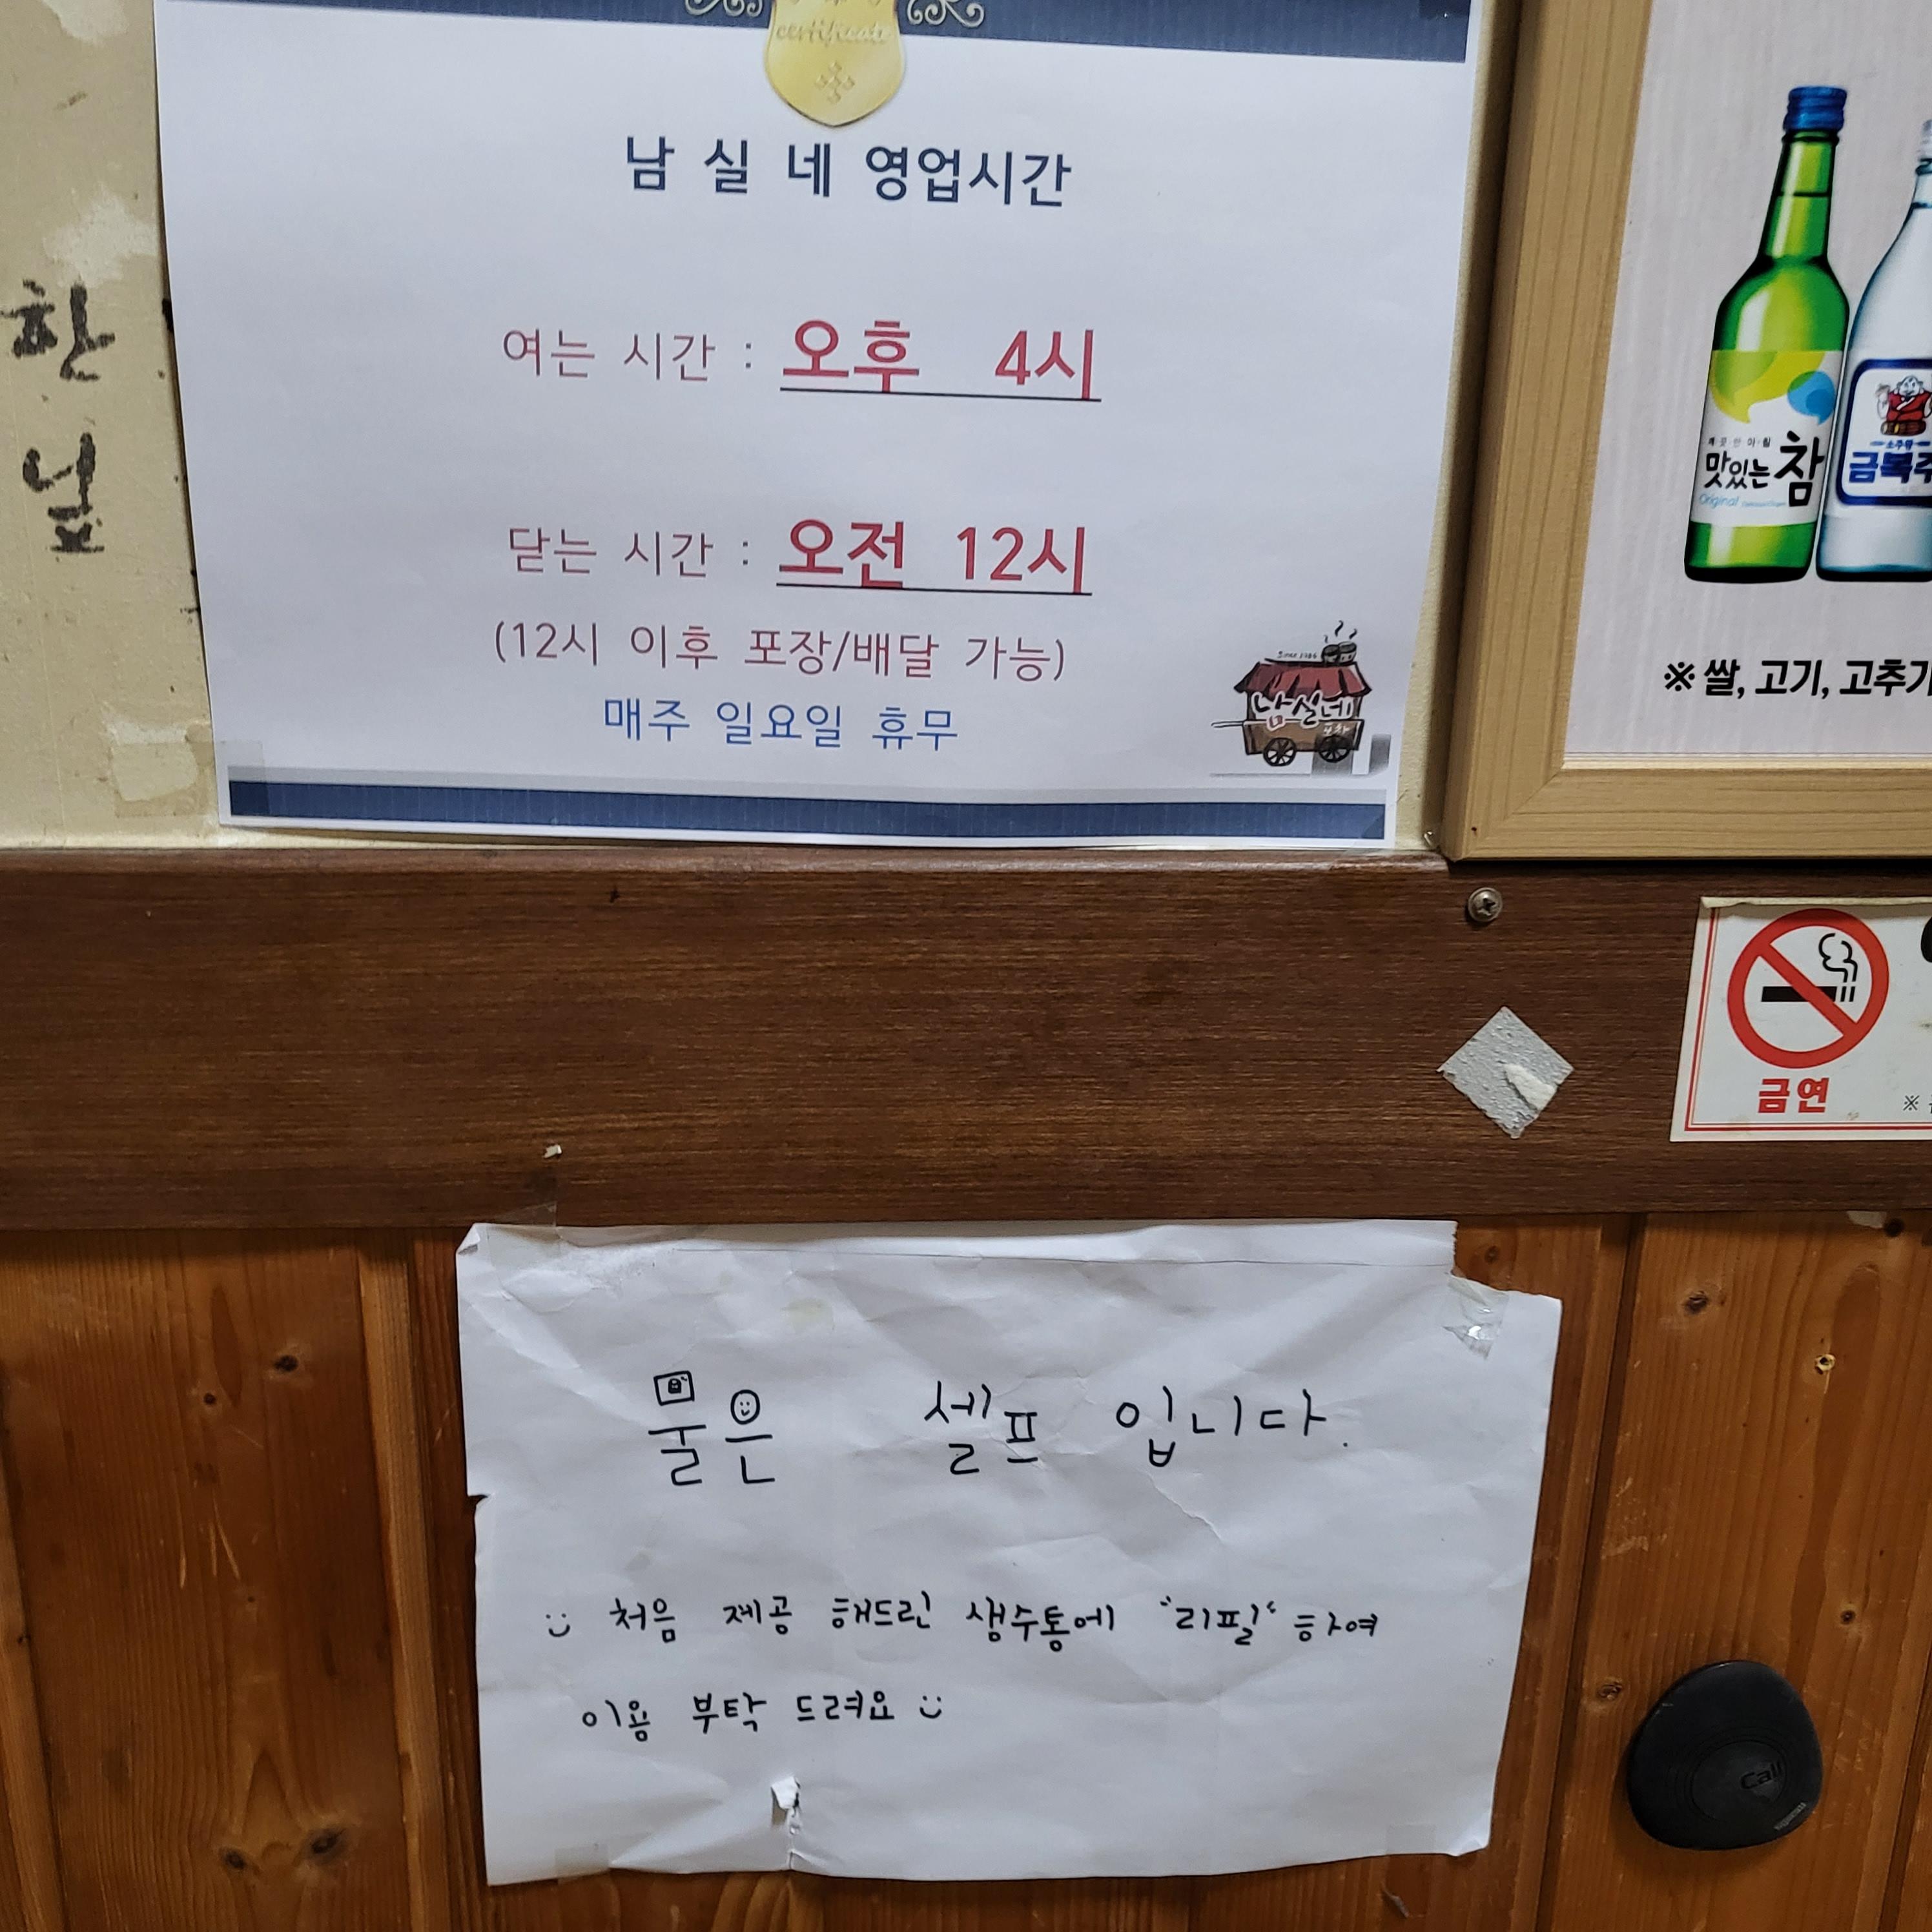 certificate
남 실 네 영업시간
여는 시간 : 오후 4시
닫는 시간 : 오전 12시
(12시 이후 포장/배달 가능)
매주 일요일 휴무
Since 1986
남실네
포차
한
깨끗한아침
맛있는 참
Original
소주왕
금복주
※ 쌀, 고기, 고추
금연
※
물은 셀프 입니다.
처음 제공 해드린 생수통에 "리필" 하여
이용 부탁 드려요
Call